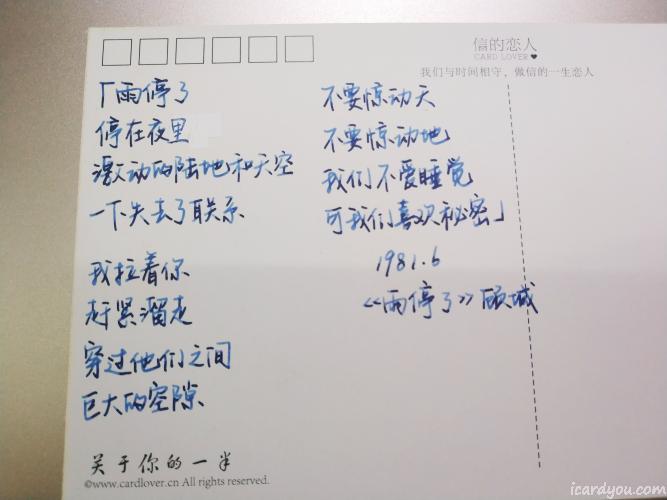 信的恋人
CARD LOVER
我们与时间相守，做信的一生恋人
「雨停了
停在夜里
激动的陆地和天空
一下失去了联系
我拉着你
赶紧溜走
穿过他们之间
巨大的空隙
不要惊动天
不要惊动地
我们不爱睡觉
可我们喜欢秘密」
1981.6
《雨停了》顾城
关于你的一半
©www.cardlover.cn All rights reserved.
icardyou.com